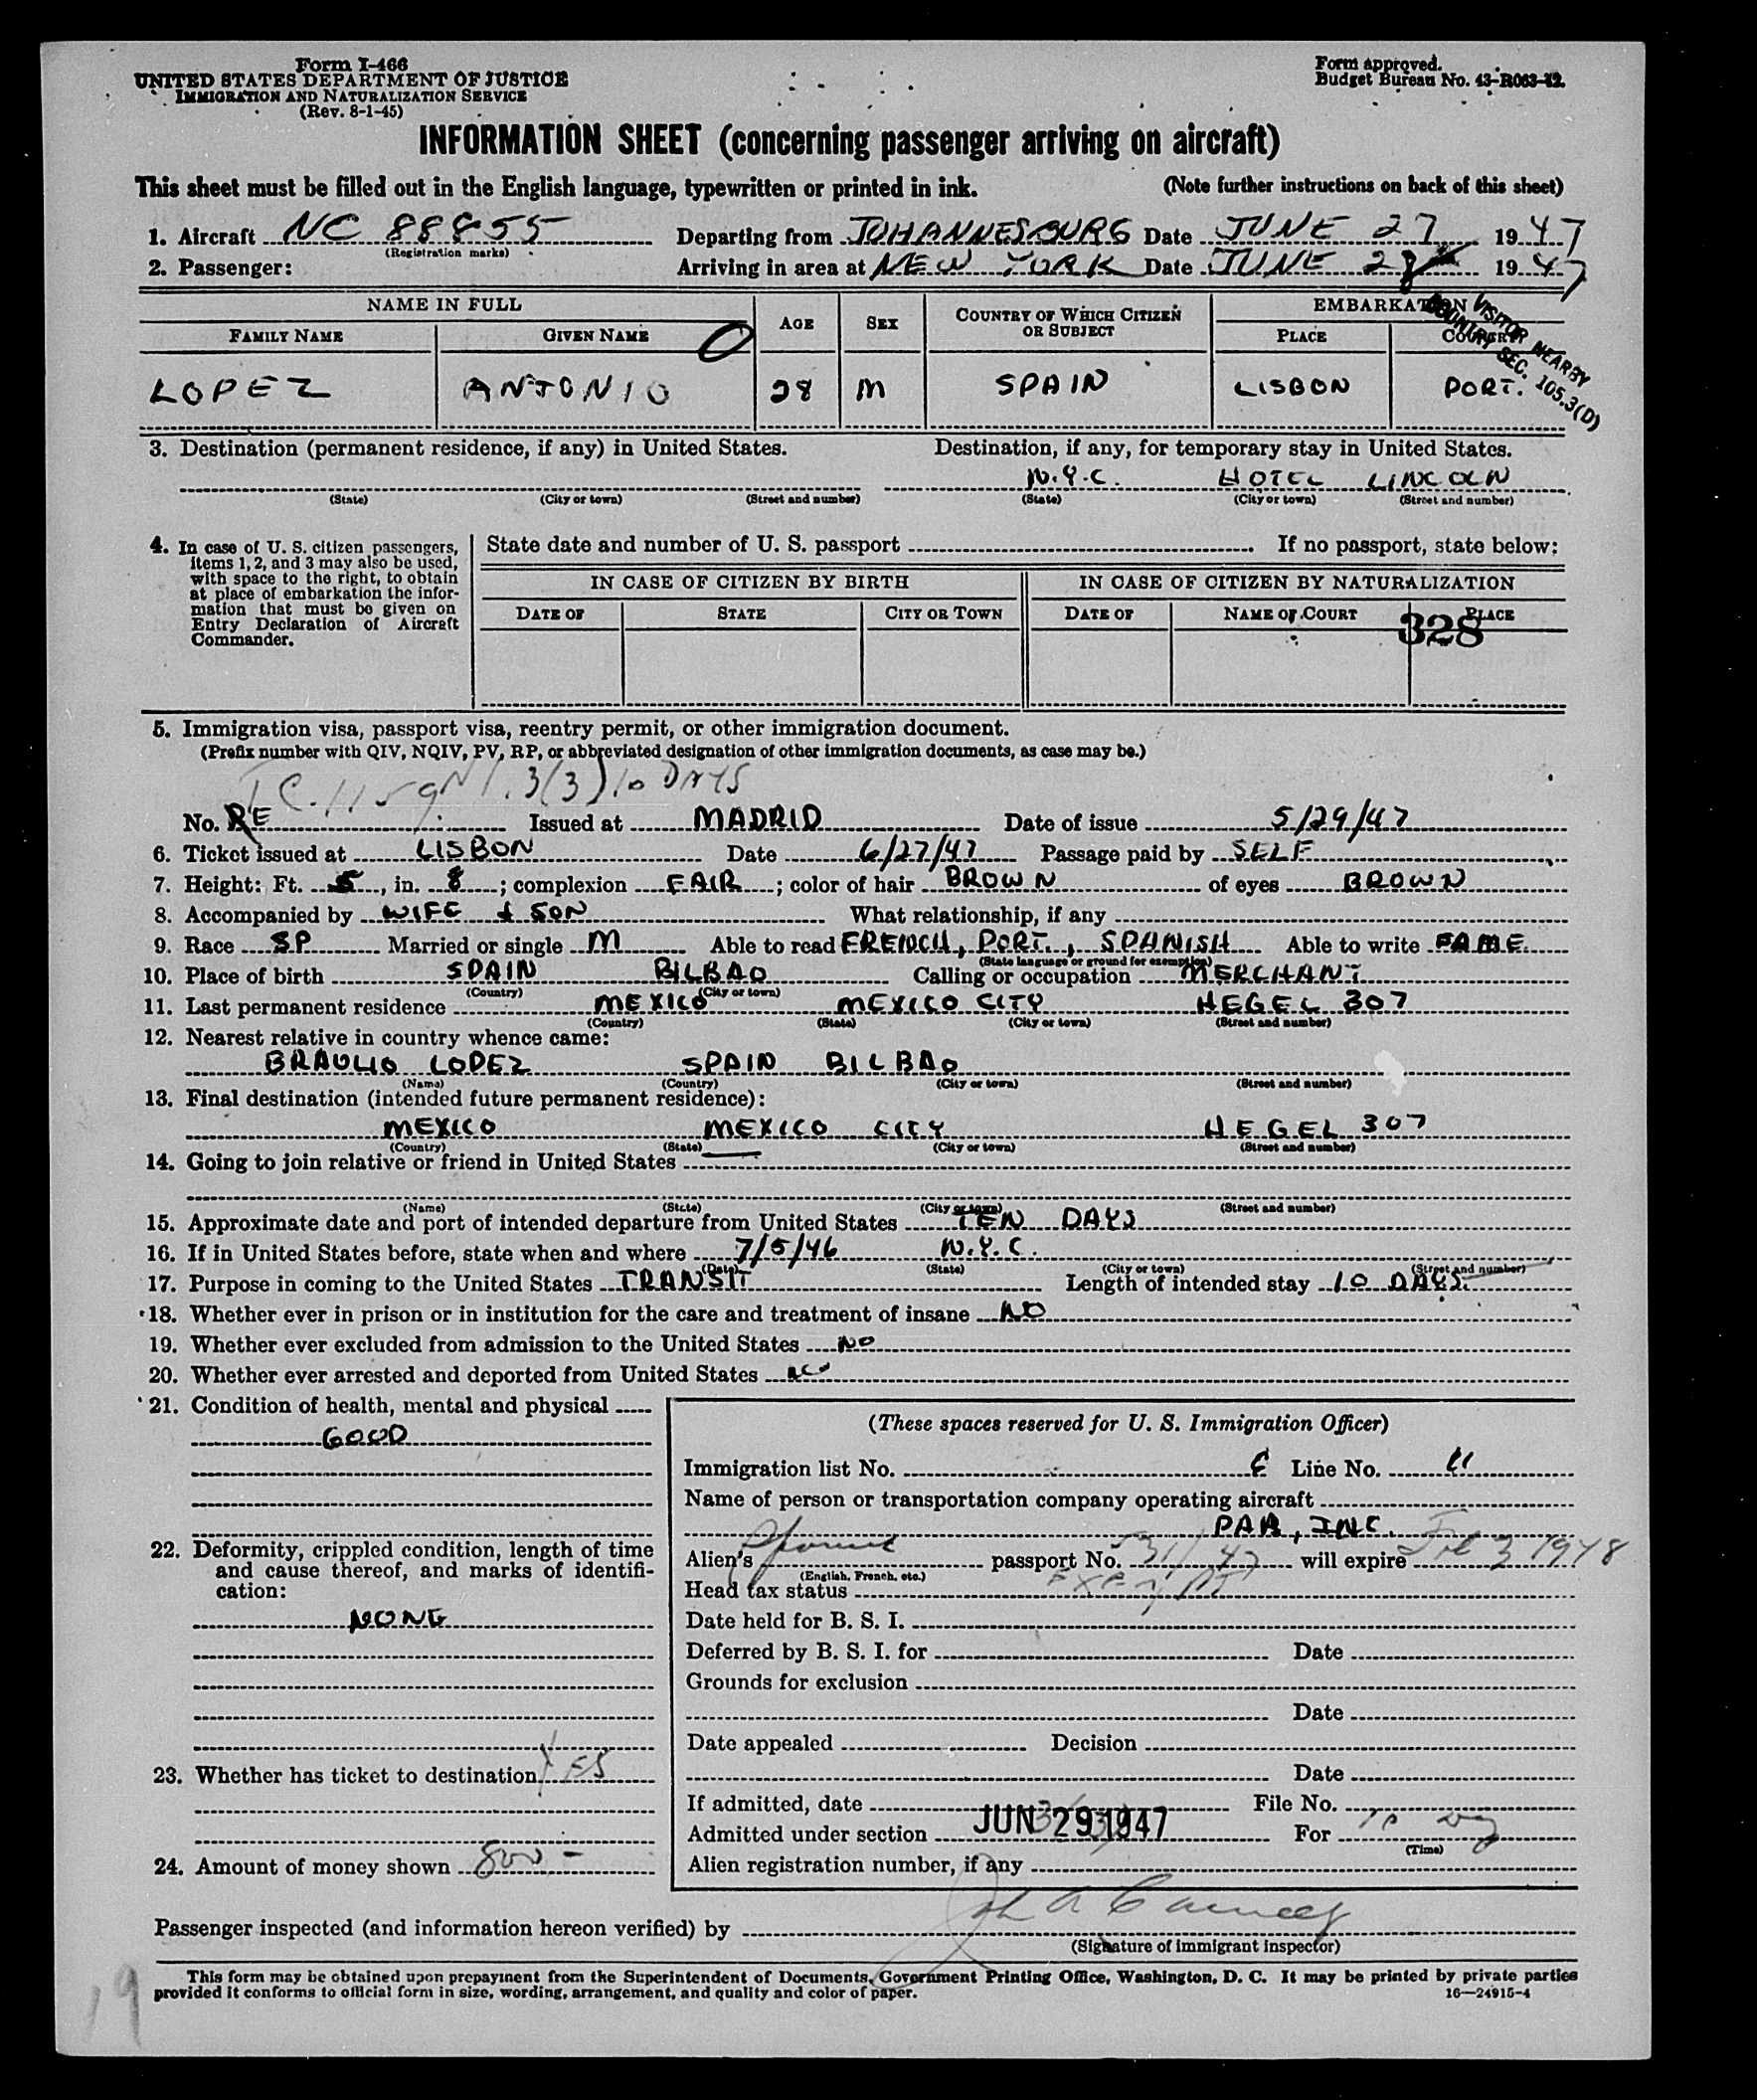 Form I-466
UNITED STATES DEPARTMENT OF JUSTICE
IMMIGRATION AND NATURALIZATION SERVICE
(Rev. 8-1-45)
Form approved.
Budget Bureau No. 43-R063-12.
INFORMATION SHEET (concerning passenger arriving on aircraft)
This sheet must be filled out in the English language, typewritten or printed in ink. (Note further instructions on back of this sheet)
1. Aircraft NC 88855 Departing from JOHANNESBURG Date JUNE 27 1947
(Registration marks)
2. Passenger: Arriving in area at NEW YORK Date JUNE 28 1947
NAME IN FULL AGE SEX COUNTRY OF WHICH CITIZEN OR SUBJECT EMBARKATION
FAMILY NAME GIVEN NAME PLACE COUNTRY
VISITOR NEARBY
COUNTRY SEC. 105.3(D)
LOPEZ ANTONIO 28 M SPAIN LISBON PORT.
3. Destination (permanent residence, if any) in United States. Destination, if any, for temporary stay in United States.
N.Y.C. HOTEL LINCOLN
(State) (City or town) (Street and number) (State) (City or town) (Street and number)
4. In case of U. S. citizen passengers, items 1, 2, and 3 may also be used, with space to the right, to obtain at place of embarkation the information that must be given on Entry Declaration of Aircraft Commander.
State date and number of U. S. passport If no passport, state below:
IN CASE OF CITIZEN BY BIRTH IN CASE OF CITIZEN BY NATURALIZATION
DATE OF STATE CITY OR TOWN DATE OF NAME OF COURT PLACE
328
5. Immigration visa, passport visa, reentry permit, or other immigration document.
(Prefix number with QIV, NQIV, PV, RP, or abbreviated designation of other immigration documents, as case may be.)
3(3) 10 DAYS
No. RE Issued at MADRID Date of issue 5/29/47
6. Ticket issued at LISBON Date 6/27/47 Passage paid by SELF
7. Height: Ft. 5, in. 8; complexion FAIR; color of hair BROWN of eyes BROWN
8. Accompanied by WIFE & SON What relationship, if any
9. Race SP Married or single M Able to read FRENCH, PORT., SPANISH Able to write SAME
(State language or ground for exemption)
10. Place of birth SPAIN BILBAO Calling or occupation MERCHANT
(Country) (City or town)
11. Last permanent residence MEXICO MEXICO CITY HEGEL 307
(Country) (State) (City or town) (Street and number)
12. Nearest relative in country whence came:
BRAULIO LOPEZ SPAIN BILBAO
(Name) (Country) (City or town) (Street and number)
13. Final destination (intended future permanent residence):
MEXICO MEXICO CITY HEGEL 307
(Country) (State) (City or town) (Street and number)
14. Going to join relative or friend in United States
(Name) (State) (City or town) (Street and number)
15. Approximate date and port of intended departure from United States TEN DAYS
16. If in United States before, state when and where 7/5/46 N.Y.C.
(Date) (State) (City or town) (Street and number)
17. Purpose in coming to the United States TRANSIT Length of intended stay 10 DAYS.
18. Whether ever in prison or in institution for the care and treatment of insane NO
19. Whether ever excluded from admission to the United States NO
20. Whether ever arrested and deported from United States NO
21. Condition of health, mental and physical
GOOD
22. Deformity, crippled condition, length of time
and cause thereof, and marks of identifi-
cation:
NONE
23. Whether has ticket to destination YES
24. Amount of money shown 800 -
(These spaces reserved for U. S. Immigration Officer)
Immigration list No. Line No. 11
Name of person or transportation company operating aircraft
PAA, INC.
Alien's Spanish passport No. 531/47 will expire Feb 3 1948
(English, French, etc.)
Head tax status Exempt
Date held for B. S. I.
Deferred by B. S. I. for Date
Grounds for exclusion
Date
Date appealed Decision
Date
If admitted, date File No.
JUN 29 1947
Admitted under section For 10 days
(Time)
Alien registration number, if any
Passenger inspected (and information hereon verified) by
(Signature of immigrant inspector)
This form may be obtained upon prepayment from the Superintendent of Documents, Government Printing Office, Washington, D. C. It may be printed by private parties
provided it conforms to official form in size, wording, arrangement, and quality and color of paper. 16—24915-4
19